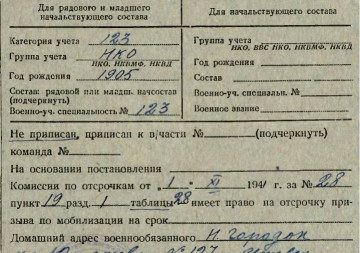 Для рядового и младшего
начальствующего состава
Категория учета 123
Группа учета НКО
НКО, НКВМФ, НКВД
Год рождения 1905
Состав: рядовой или младш. начсостав
(подчеркнуть)
Военно-уч. специальность № 123
Для начальствующего состава
Группа учета
НКО, ВВС НКО, НКВМФ, НКВД
Год рождения
Состав
Военно-уч. специальн. №
Военное звание
Не приписан, приписан к в/части № (подчеркнуть)
команда №
На основании постановления
Комиссии по отсрочкам от 1 XI 1941 г. за № 28
пункт 19 разд. 1 таблицы 28 имеет право на отсрочку при-
зыва по мобилизации на срок
Домашний адрес военнообязанного
№ 127